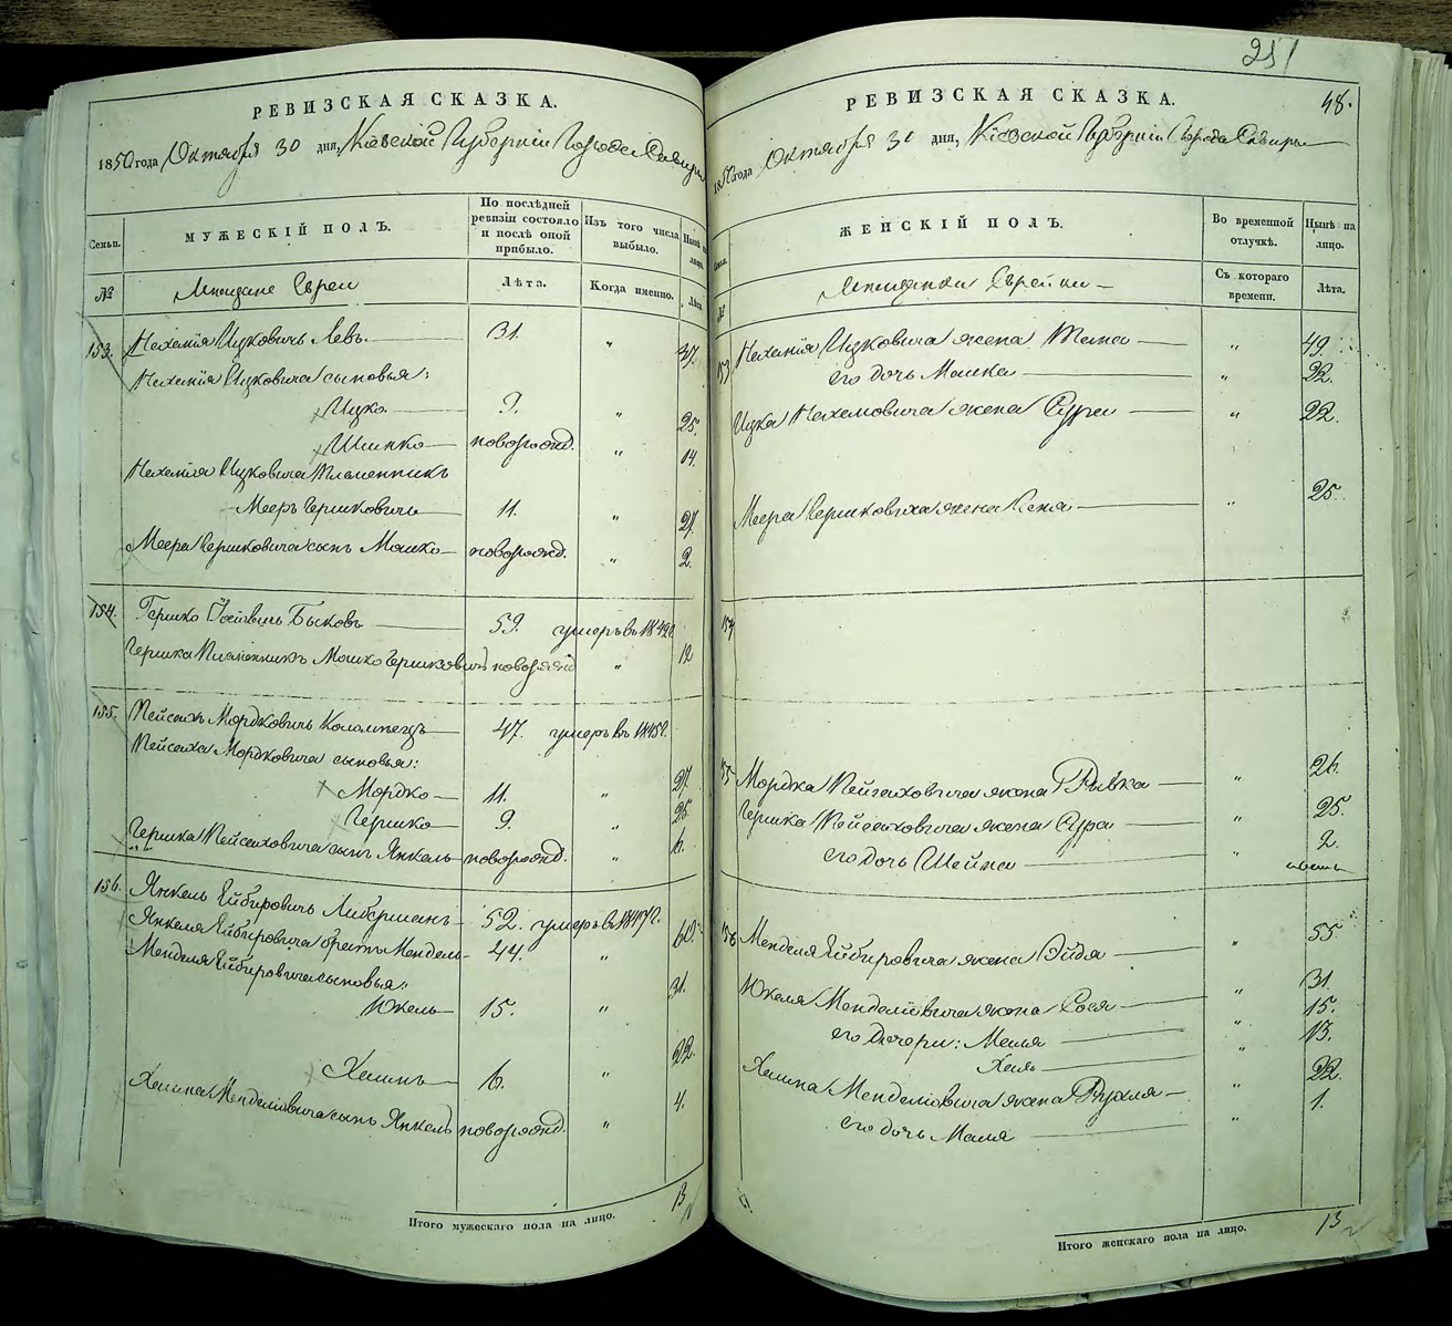 РЕВИЗСКАЯ СКАЗКА.
1850 года Октября 30 дня, Кіевской Губерніи Города Сквиры
Семьи.
МУЖЕСКІЙ ПОЛЪ.
По послѣдней
ревизіи состояло
и послѣ оной
прибыло.
Изъ того числа
выбыло.
Нынѣ на
лицо.
№
Мещане Евреи
Лѣта.
Когда именно.
Лѣта
153. Нахамія Ицковичь Левъ. 31. " 37.
Нахамія Ицковича сыновья:
Ицко 9. " 25.
Шимко новорожд. " 14.
Нахамія Ицковича Племенникъ
Мееръ Гершковичь 11. " 27.
Меера Гершковича сынъ Мошко новорожд. " 2.
154. Гершко Быковъ 59. умеръ въ 1842
Гершка Племенникъ Мошко Гершковичь новорожд " 12
155. Пейсахъ Мордковичь Коломпецъ 47. умеръ въ 1845г.
Пейсаха Мордковича сыновья:
Мордко 11. " 27.
Гершко 9. " 25.
Гершка Пейсаховича сынъ Янкель новорожд. " 6.
156. Янкель Ейбировичь Либерманъ 52. умеръ въ 1847г.
Янкеля Ейбировича братъ Мендель 44. " 60.
Менделя Ейбировича сыновья:
Юкель 15. " 31.
Хаимъ 6. " 22.
Хаима Менделіовича сынъ Янкель новорожд. " 4.
Итого мужескаго пола на лицо. 13
251
48.
РЕВИЗСКАЯ СКАЗКА.
1850 года Октября 30 дня, Кіевской Губерніи Города Сквиры
Семьи.
ЖЕНСКІЙ ПОЛЪ.
Во временной
отлучкѣ.
Нынѣ на
лицо.
№
Мещанки Еврейки
Съ котораго
времени.
Лѣта.
153 Нахамія Ицковича жена " 49.
его дочь Машка " 22.
Ицка Нахамовича жена Сура " 22.
Меера Гершковича жена " 25.
154
155 Мордка Пейсаховича жена Рывка " 26.
Гершка Пейсаховича жена Сура " 25.
его дочь Шейна " 2.
156 Менделя Ейбировича жена Эйдя " 55
Юкеля Менделіовича жена Сося " 31.
его дочери: Маля " 15.
" 13.
Хаима Менделіовича жена Рухля " 22.
его дочь Маля " 1.
Итого женскаго пола на лицо. 13